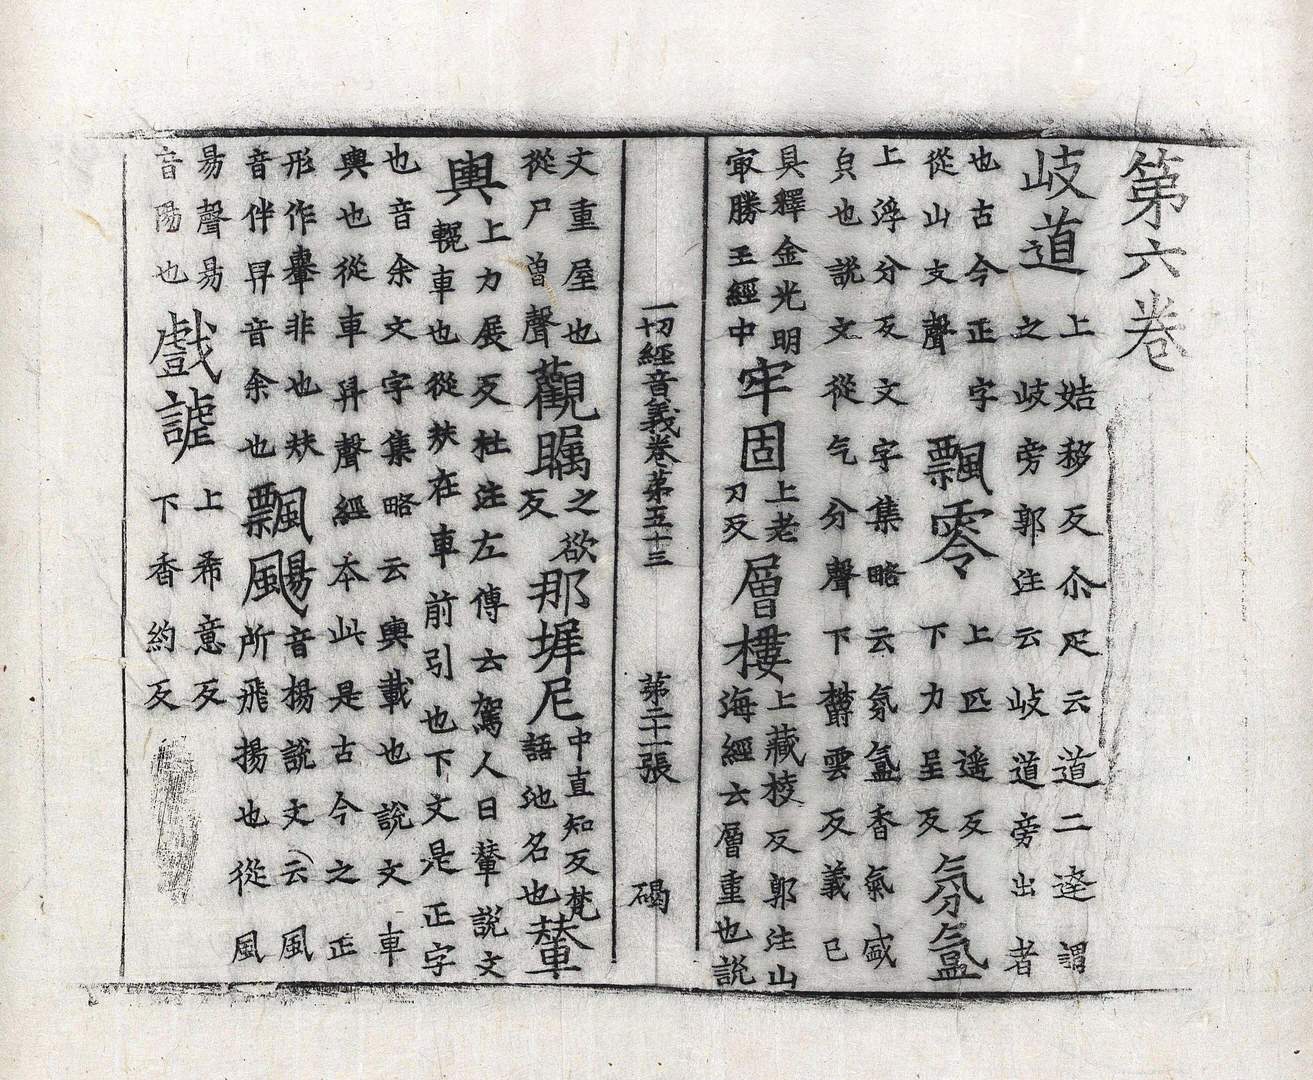 第六卷
岐道
上姞移反尒疋云道二逵謂
之岐旁郭注云岐道旁出者
也古今正字
從山支聲
飄零
上匹遥反
下力呈反
氛氳
上浮分反文字集略云氛氳香氣盛
皃也説文從气分聲下欝雲反義已
具釋金光明
㝡勝王經中
牢固
上老
刀反
層樓
上藏棱反郭注山
海經云層重也説
一切經音義卷第五十三 第二十一張 碣
文重屋也
從尸曽聲
觀矚
之欲
反
那墀尼
中直知反梵
語地名也
輦
輿
上力展反杜注左傳云駕人曰輦説文
輓車也從㚘在車前引也下文是正字
也音余文字集略云輿載也説文車
輿也從車舁聲經本此是古今之正
形作轝非也㚘
音伴舁音余也
飄颺
音揚説文云風
所飛揚也從風
昜聲昜
音陽也
戲謔
上希意反
下香約反